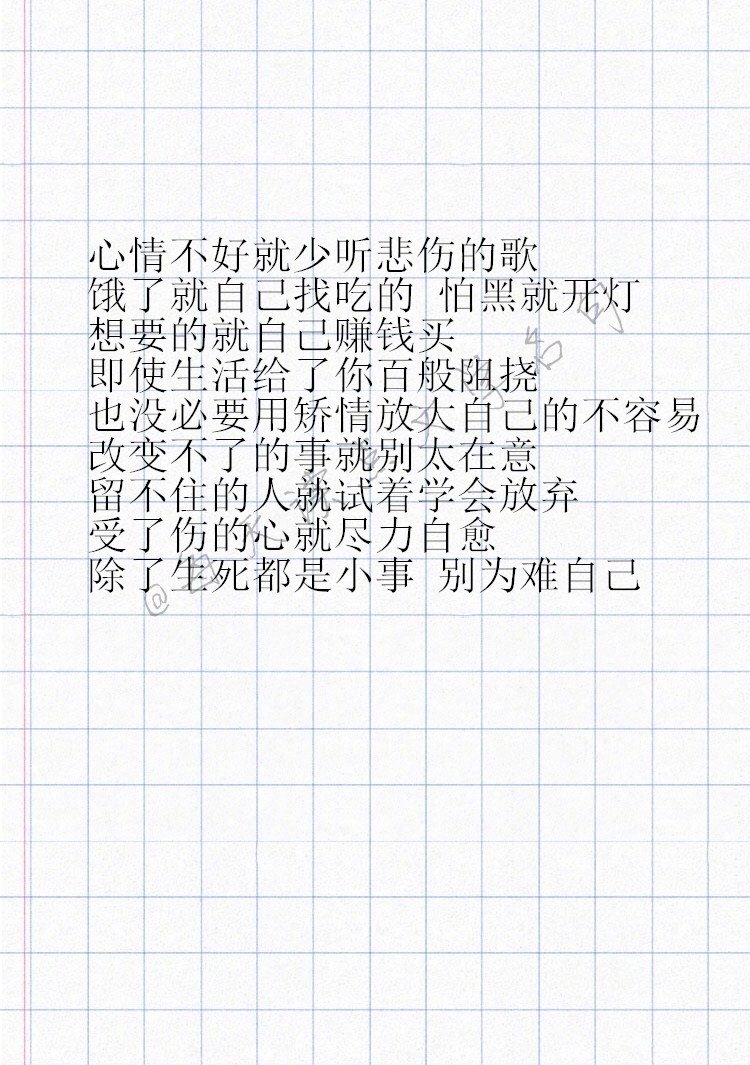 心情不好就少听悲伤的歌
饿了就自己找吃的 怕黑就开灯
想要的就自己赚钱买
即使生活给了你百般阻挠
也没必要用矫情放大自己的不容易
改变不了的事就别太在意
留不住的人就试着学会放弃
受了伤的心就尽力自愈
除了生死都是小事 别为难自己